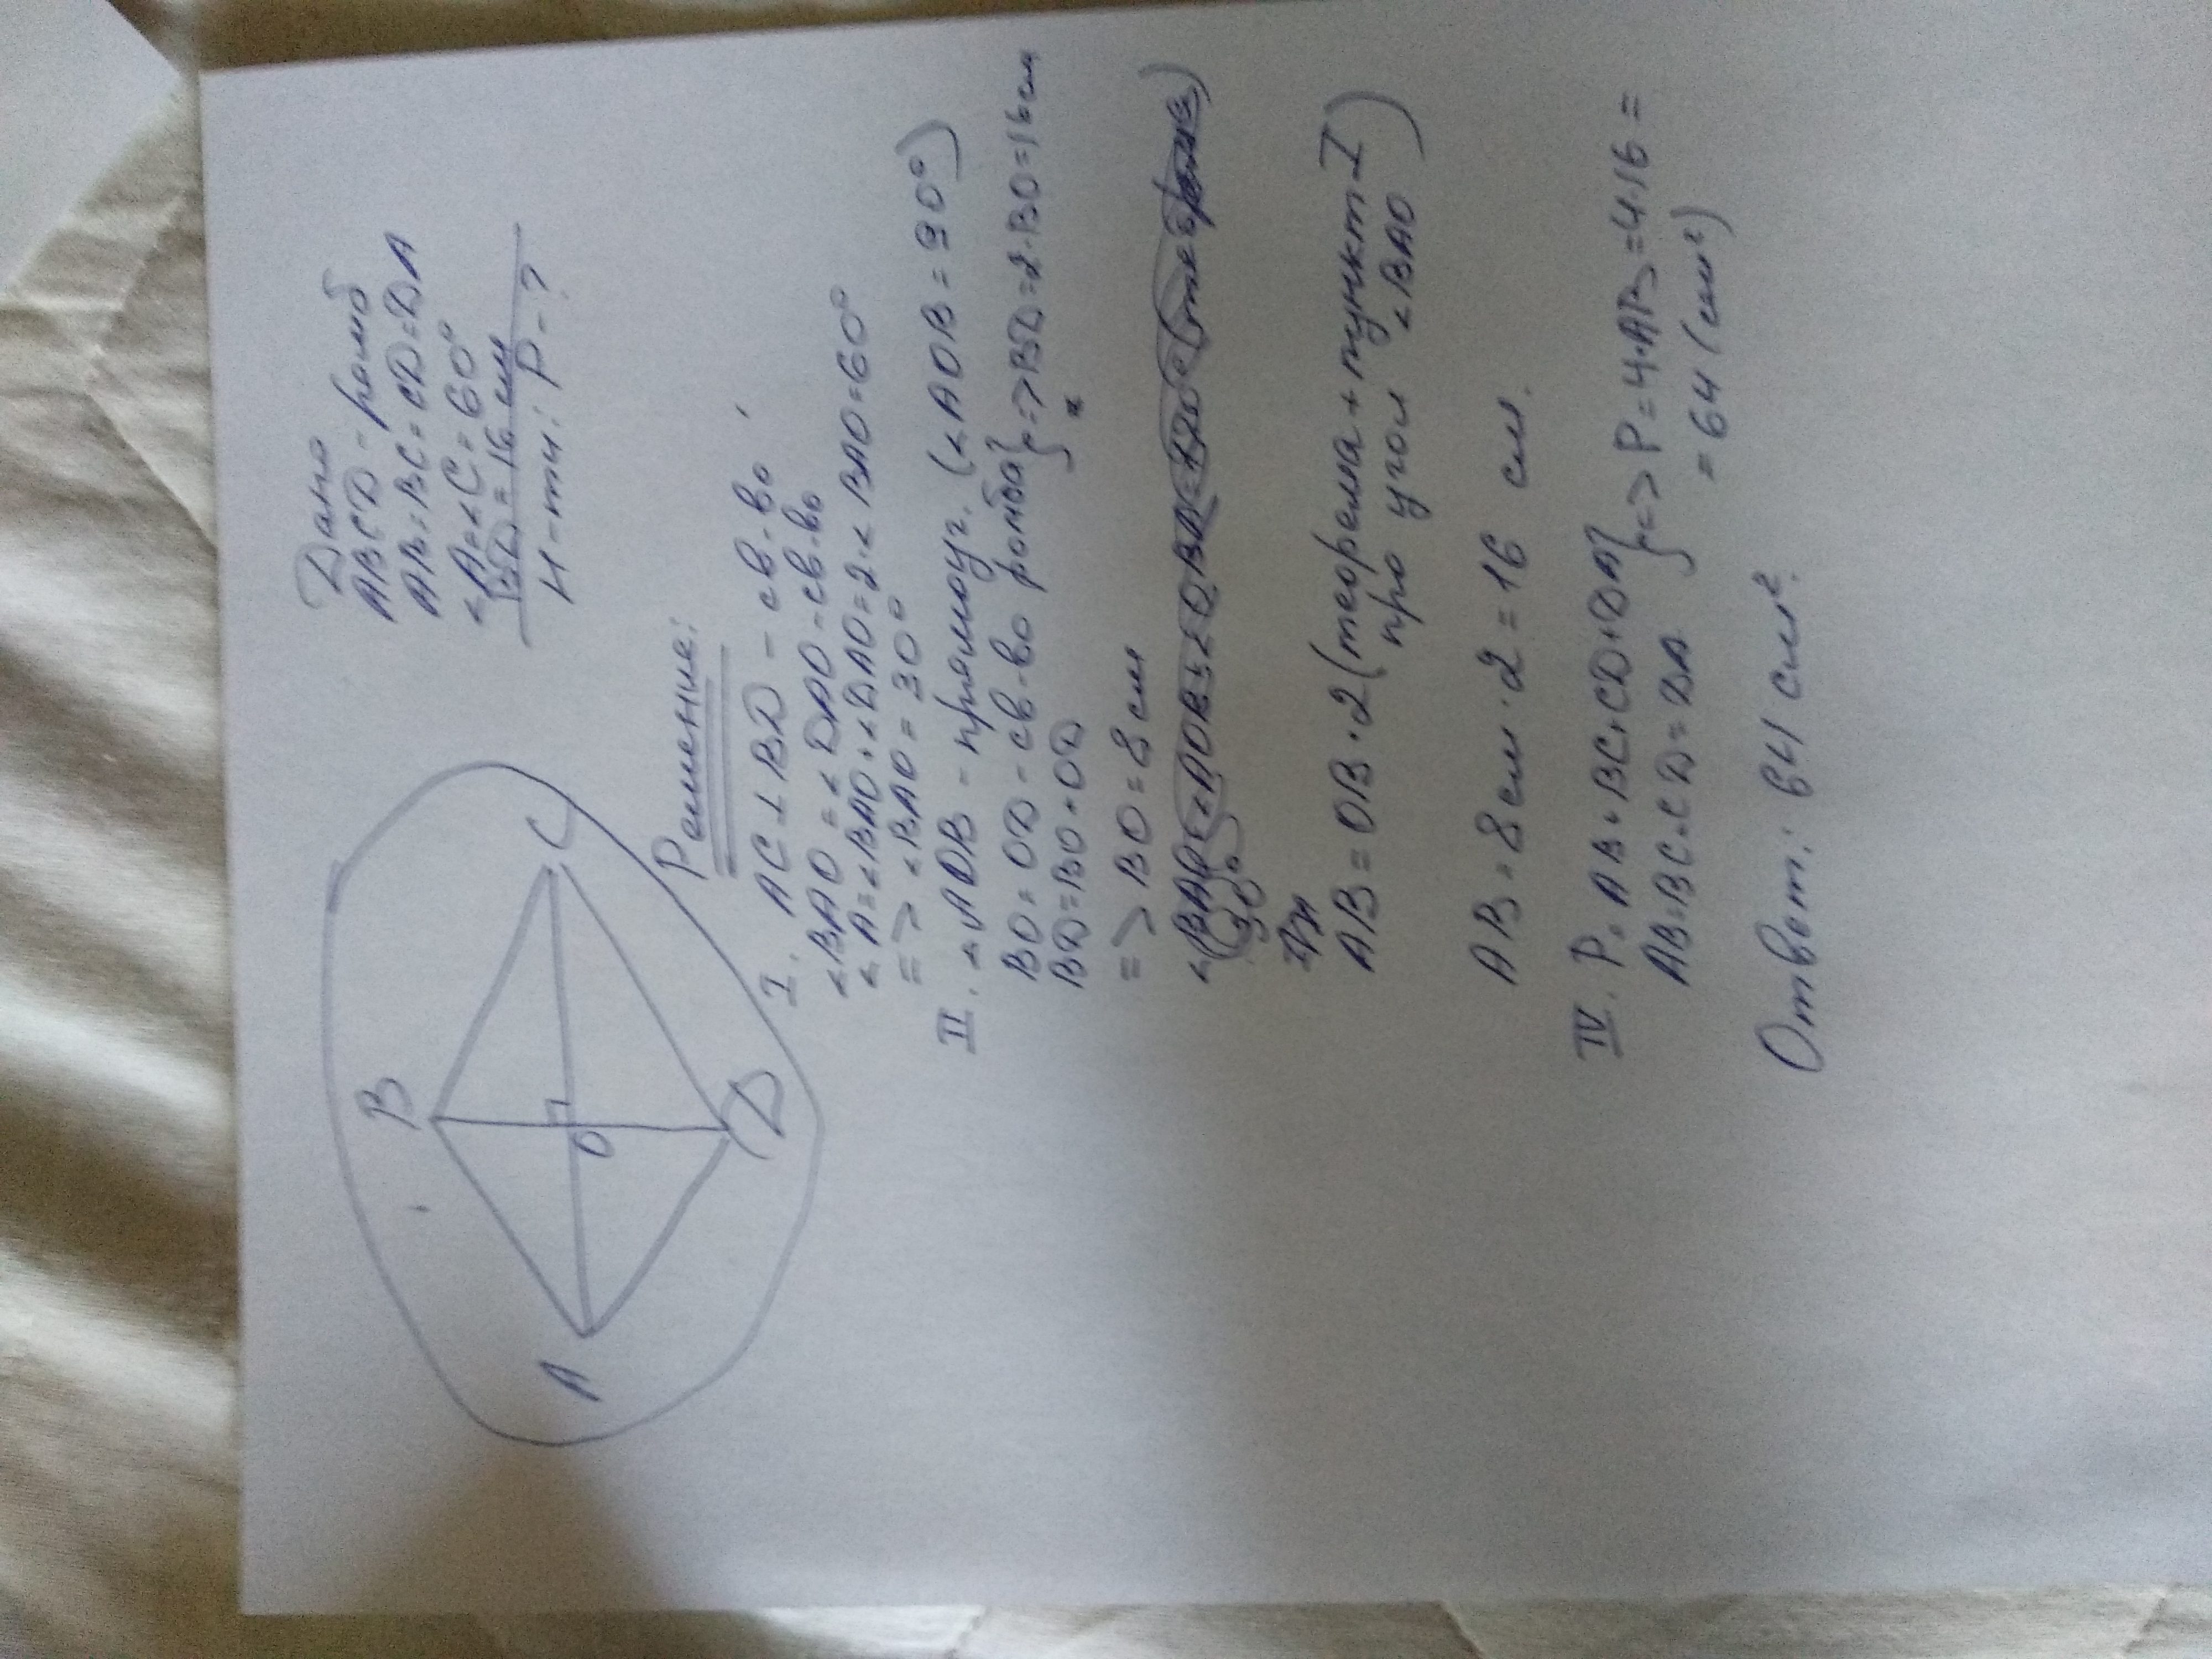 Дано
ABCD - ромб
AB=BC=CD=DA
∠A=∠C=60°
BD=16 см
Н-ти: P-?
B
C
O
A
D
Решение:
I. AC⊥BD - св-во
∠BAO=∠DAO-св-во
∠A=∠BAO+∠DAO=2·∠BAO=60°
=>∠BAO=30°
II. ∠AOB-прямоуг. (∠AOB=90°)
BO=OD-св-во ромба}=>BD=2·BO=16см
BD=BO+OD
=>BO=8см
30°
AB=OB·2(теорема+пункт I
про угол ∠BAO)
AB=8см·2=16 см.
IV. P=AB+BC+CD+DA}=>P=4·AB=4·16=
AB=BC=CD=DA =64(см²)
Ответ: 64 см².